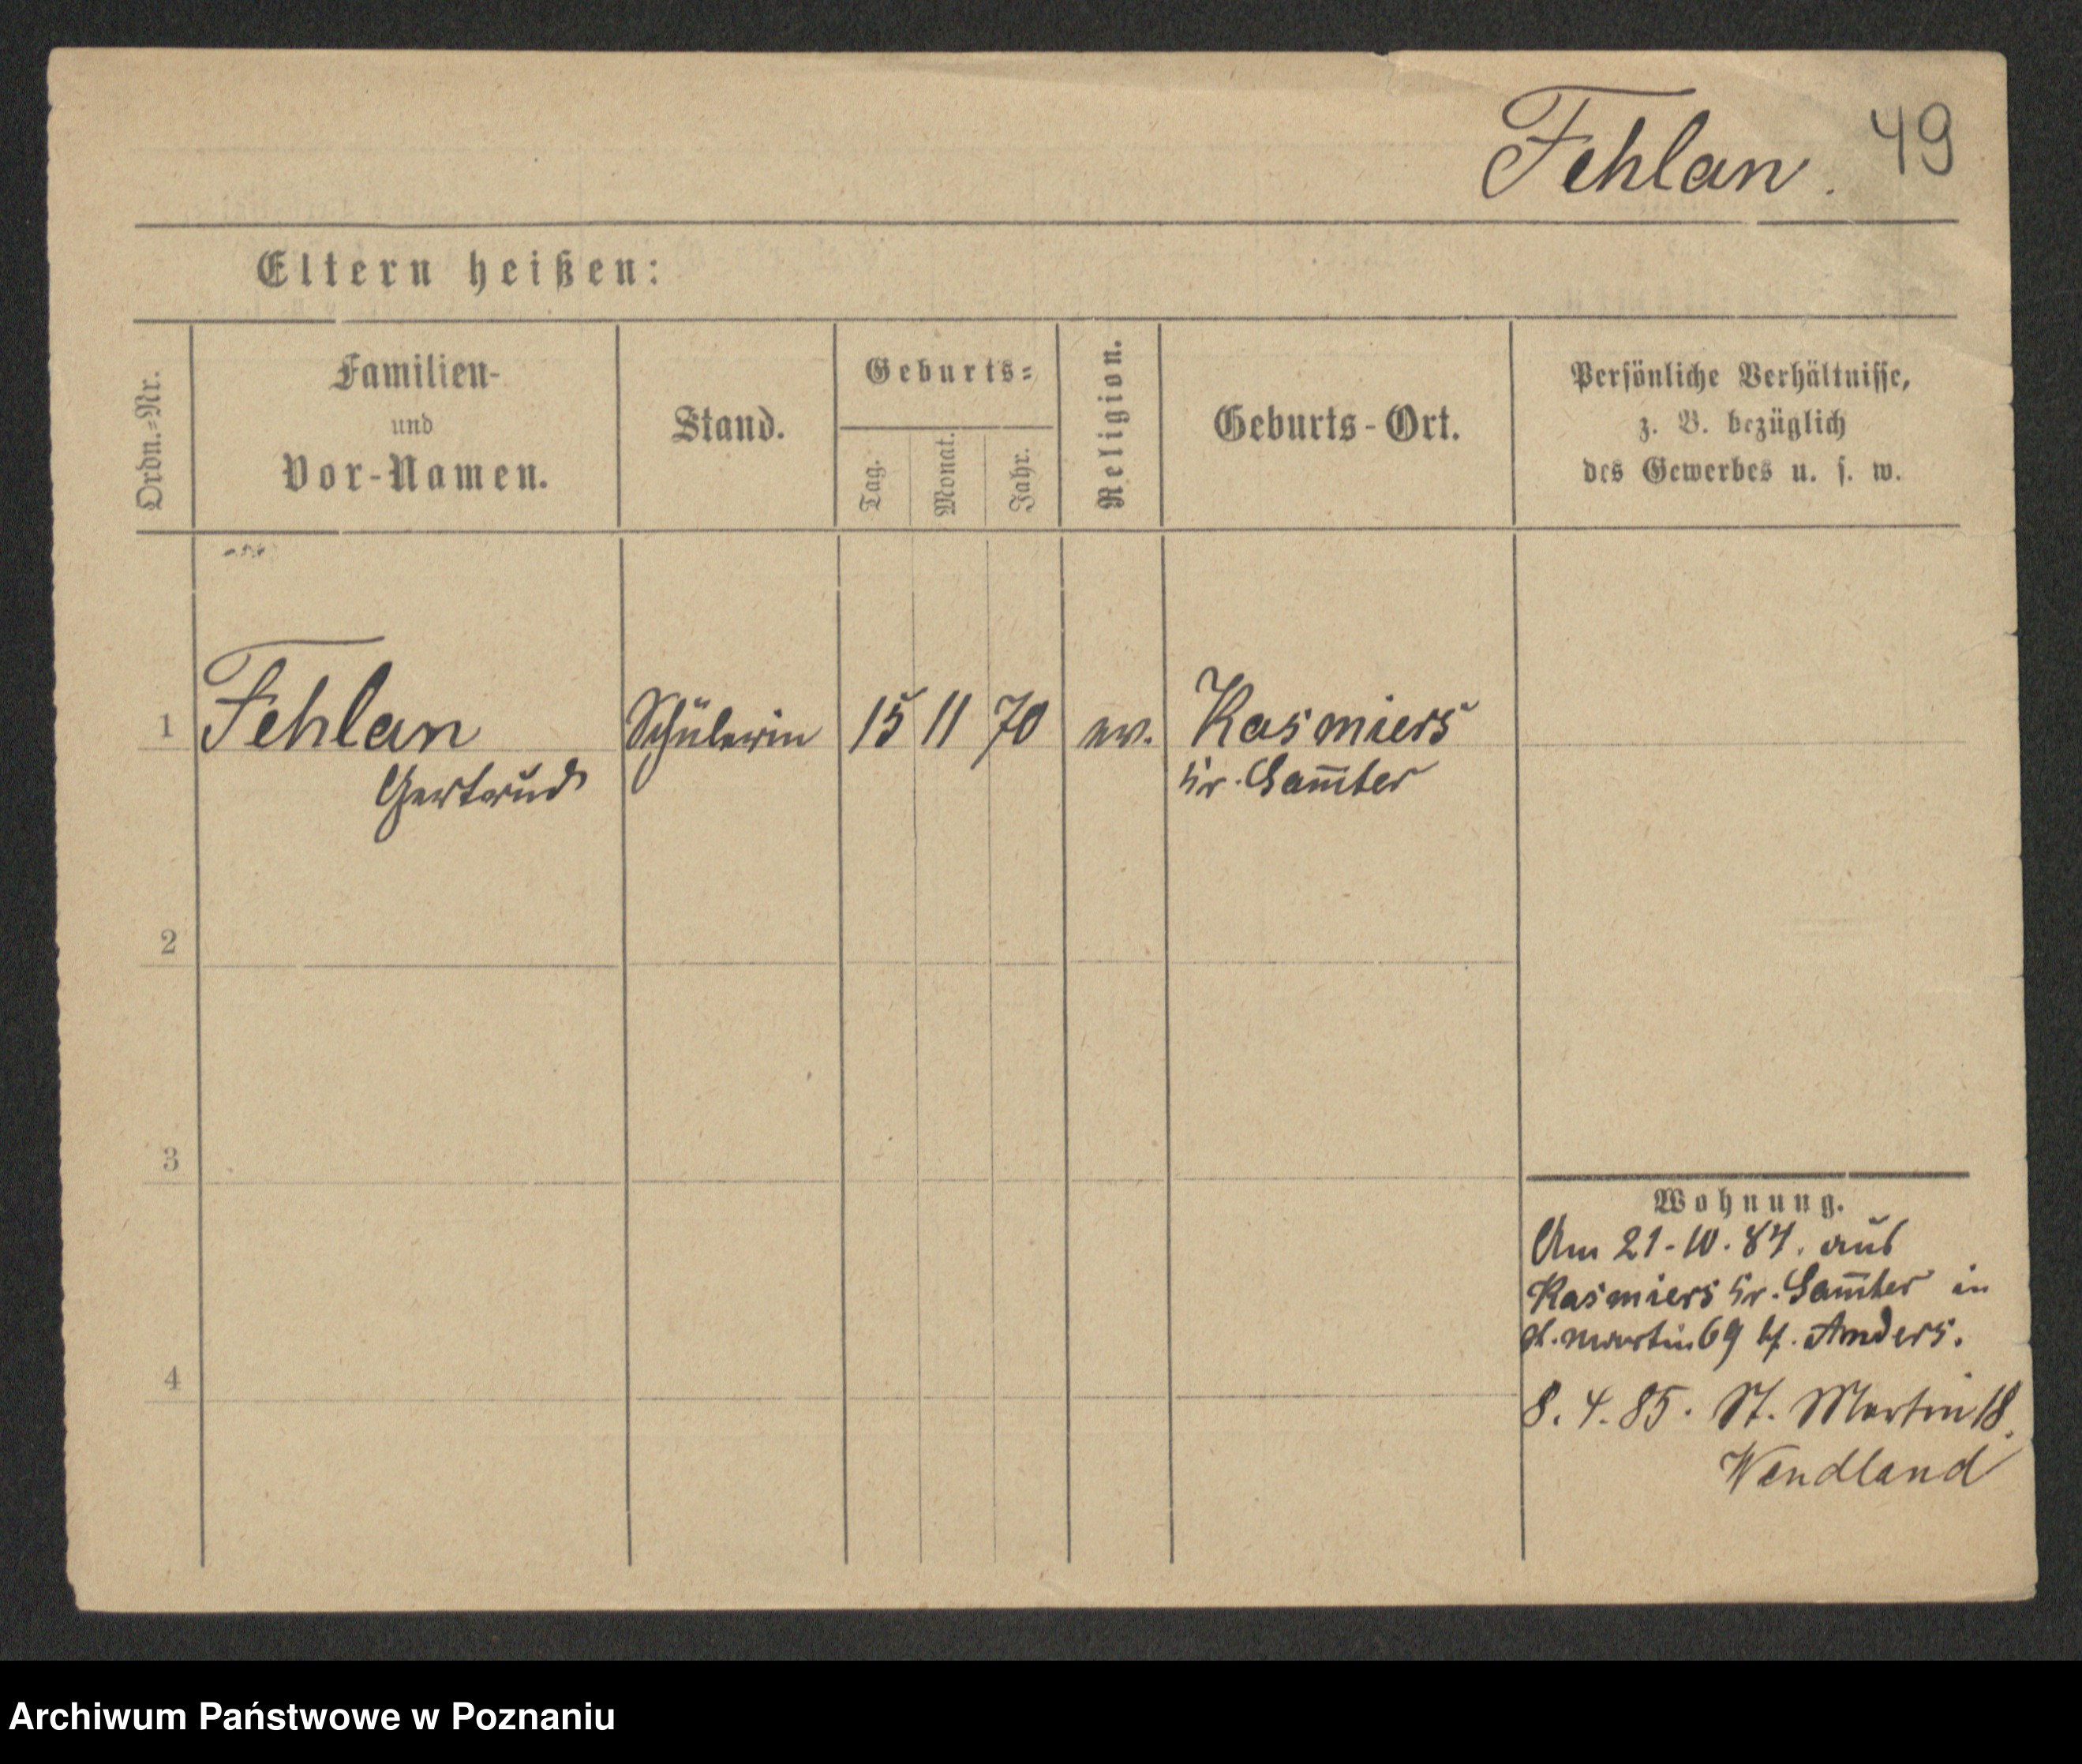 Fehlan. 49
Eltern heißen:
Ordn.=Nr.
Familien-
und
Vor-Namen.
Stand.
Geburts=
Tag.
Monat.
Jahr.
Religion.
Geburts-Ort.
Persönliche Verhältnisse,
z. B. bezüglich
des Gewerbes u. s. w.
1 Fehlan Schülerin 15 11 70 ev. Kasmiers
Gertrud Kr. Sam̅ter
2
3
4
Wohnung.
Am 21-10.84. aus
Kasmiers Kr. Sam̅ter in
St. Martin 69 bei Anders.
8.4.85. St. Martin 18.
Wendland
Archiwum Państwowe w Poznaniu